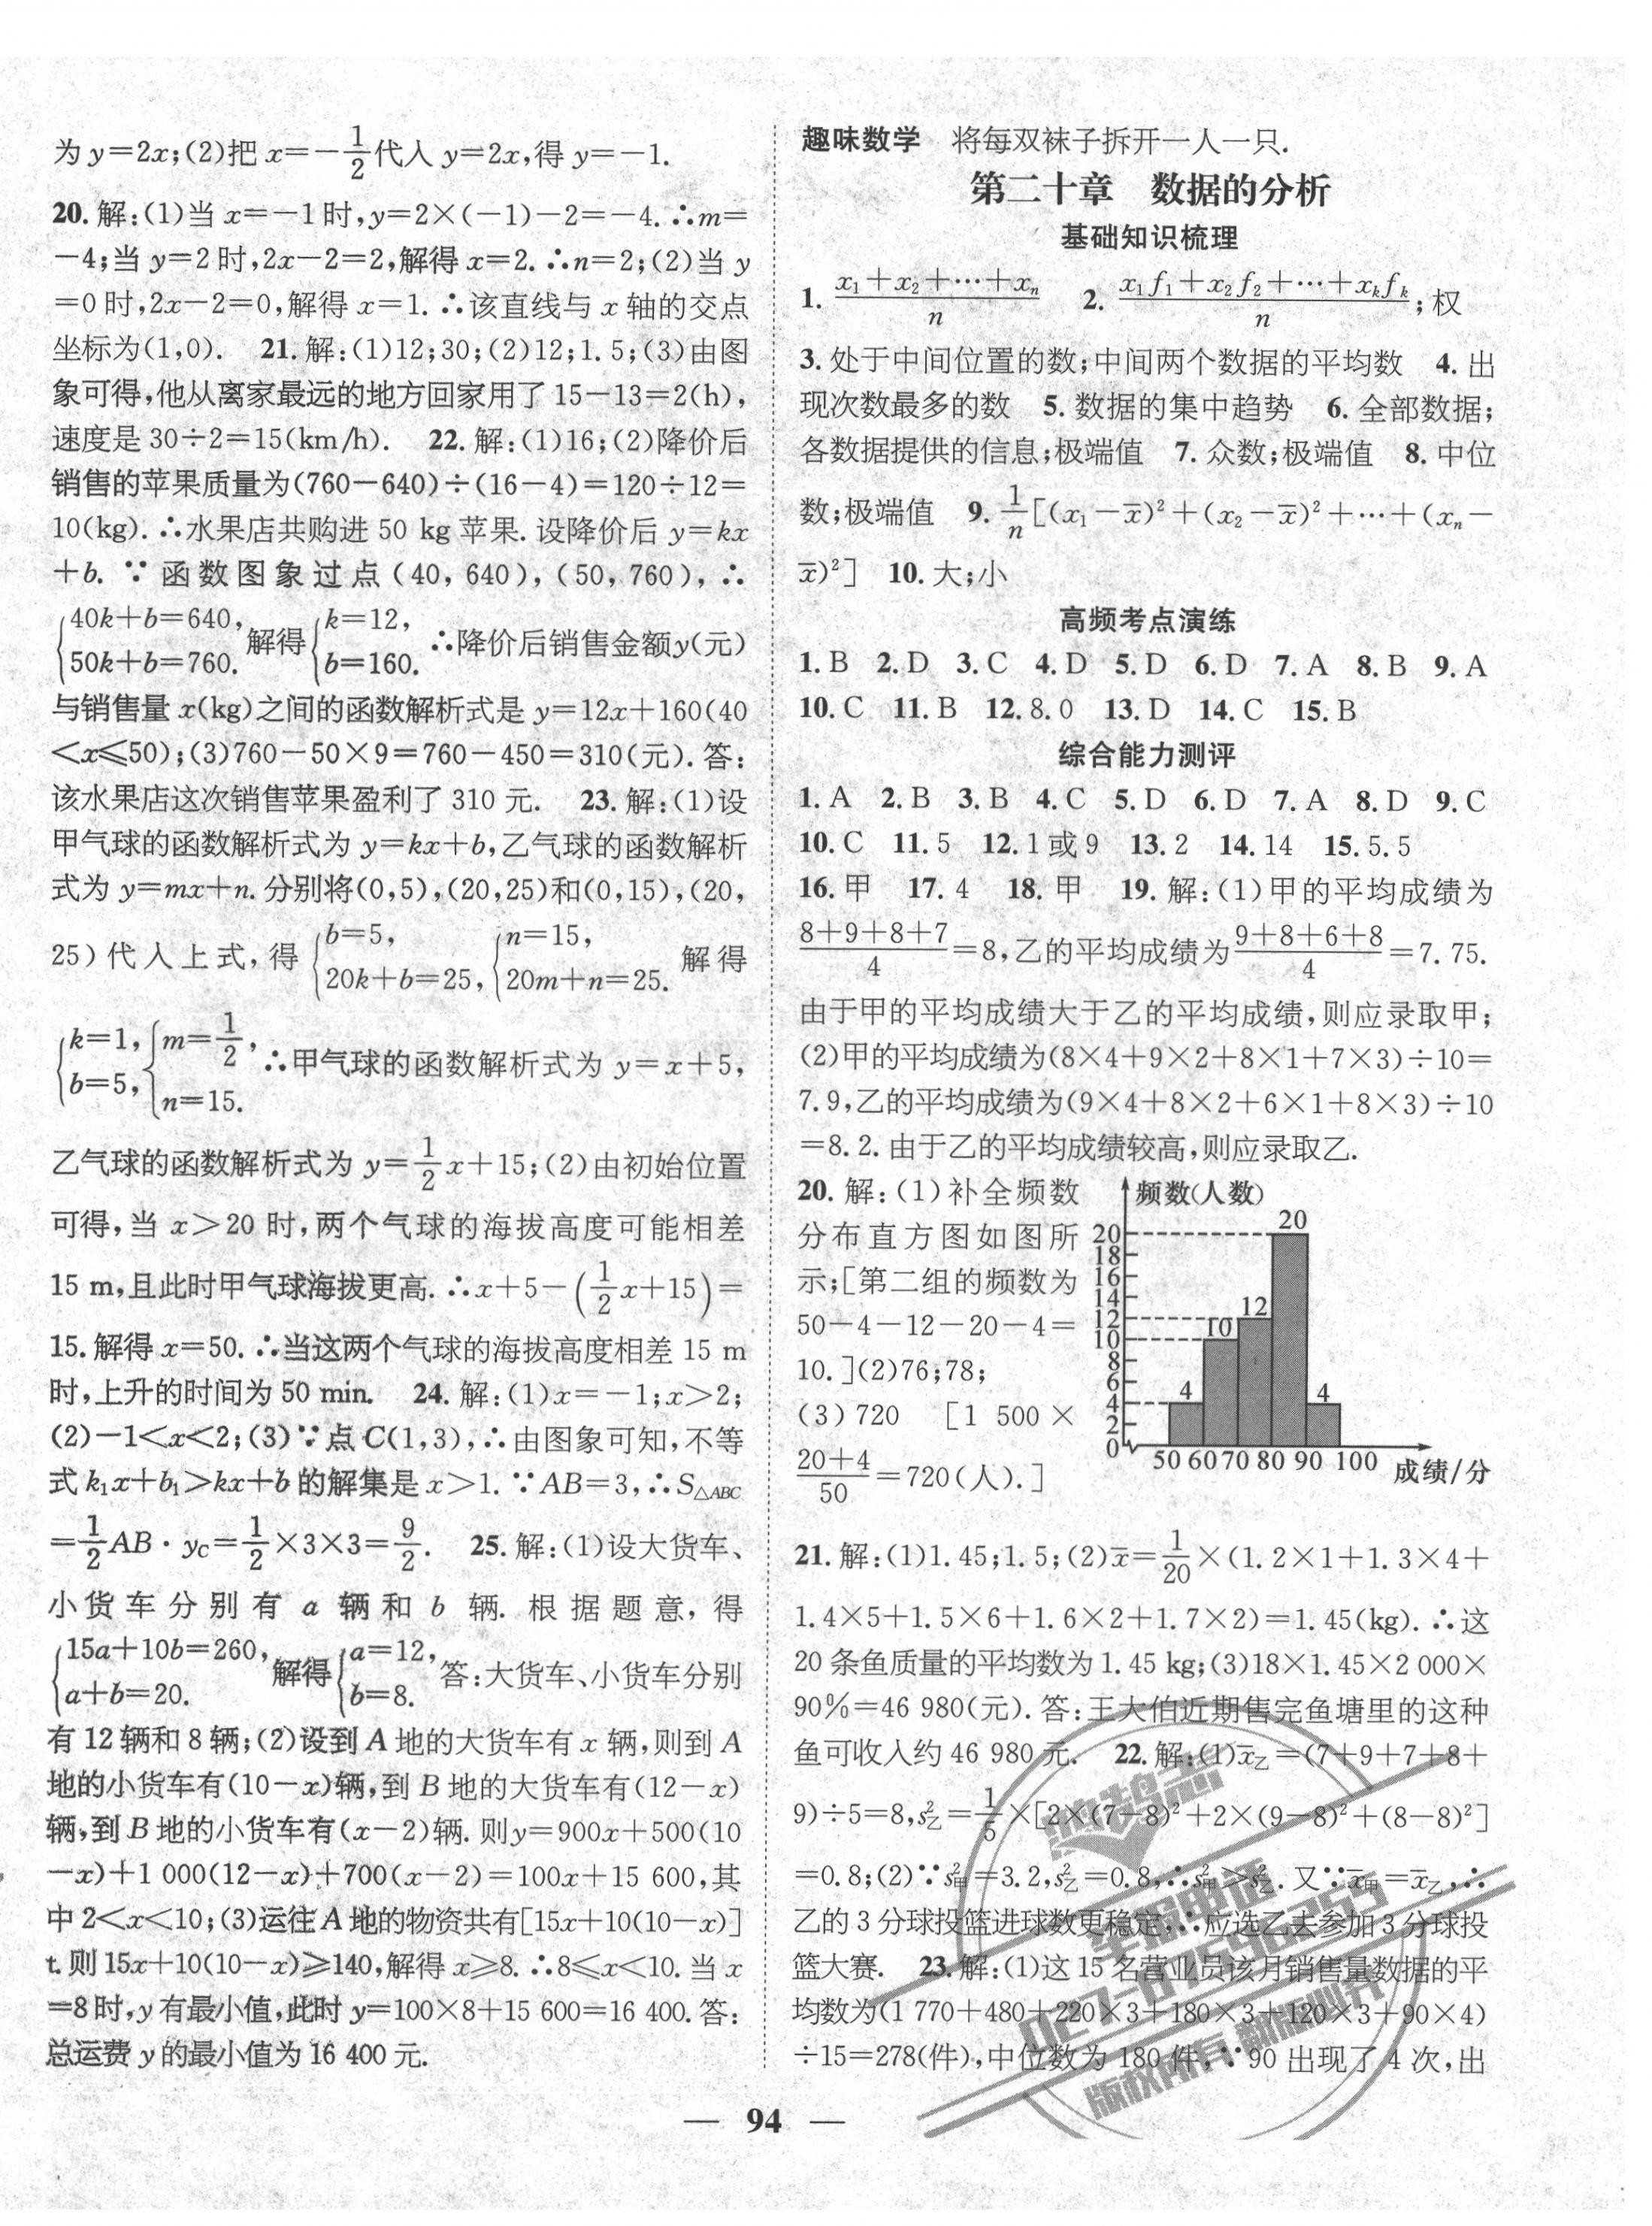 为 y=2x;(2)把 x=-1/2代入 y=2x,得 y=-1.
20. 解:(1)当 x=-1 时,y=2×(-1)-2=-4. ∴m=
-4;当 y=2 时,2x-2=2,解得 x=2. ∴n=2;(2)当 y
=0 时,2x-2=0,解得 x=1. ∴该直线与 x 轴的交点
坐标为(1,0). 21. 解:(1)12;30;(2)12;1.5;(3)由图
象可得,他从离家最远的地方回家用了 15-13=2(h),
速度是 30÷2=15(km/h). 22. 解:(1)16;(2)降价后
销售的苹果质量为(760-640)÷(16-4)=120÷12=
10(kg). ∴水果店共购进 50 kg 苹果. 设降价后 y=kx
+b. ∵ 函数图象过点(40, 640),(50, 760), ∴
{40k+b=640, 50k+b=760. 解得{k=12, b=160. ∴降价后销售金额y(元)
与销售量 x(kg)之间的函数解析式是 y=12x+160(40
<x≤50);(3)760-50×9=760-450=310(元). 答:
该水果店这次销售苹果盈利了 310 元. 23. 解:(1)设
甲气球的函数解析式为 y=kx+b,乙气球的函数解析
式为 y=mx+n. 分别将(0,5),(20,25)和(0,15),(20,
25)代入上式,得 {b=5, 20k+b=25, {n=15, 20m+n=25. 解得
{k=1, b=5, {m=1/2, n=15. ∴甲气球的函数解析式为 y=x+5,
乙气球的函数解析式为 y=1/2x+15;(2)由初始位置
可得,当 x>20 时,两个气球的海拔高度可能相差
15 m,且此时甲气球海拔更高. ∴x+5-(1/2x+15)=
15. 解得 x=50. ∴当这两个气球的海拔高度相差 15 m
时,上升的时间为 50 min. 24. 解:(1)x=-1;x>2;
(2)-1<x<2;(3)∵点 C(1,3),∴由图象可知,不等
式 k₁x+b₁>kx+b 的解集是 x>1. ∵AB=3,∴S△ABC
=1/2AB·yC=1/2×3×3=9/2. 25. 解:(1)设大货车、
小货车分别有 a 辆和 b 辆. 根据题意,得
{15a+10b=260, a+b=20. 解得{a=12, b=8. 答:大货车、小货车分别
有 12 辆和 8 辆;(2)设到 A 地的大货车有 x 辆,则到 A
地的小货车有(10-x)辆,到 B 地的大货车有(12-x)
辆,到 B 地的小货车有(x-2)辆. 则y=900x+500(10
-x)+1 000(12-x)+700(x-2)=100x+15 600,其
中 2<x<10;(3)运往 A 地的物资共有[15x+10(10-x)]
t. 则 15x+10(10-x)≥140,解得 x≥8. ∴8≤x<10. 当 x
=8时,y 有最小值,此时 y=100×8+15 600=16 400. 答:
总运费 y 的最小值为 16 400 元.
趣味数学 将每双袜子拆开一人一只.
第二十章 数据的分析
基础知识梳理
1. (x₁+x₂+…+xₙ)/n 2. (x₁f₁+x₂f₂+…+xₖfₖ)/n;权
3. 处于中间位置的数;中间两个数据的平均数 4. 出
现次数最多的数 5. 数据的集中趋势 6. 全部数据;
各数据提供的信息;极端值 7. 众数;极端值 8. 中位
数;极端值 9. 1/n[(x₁-x̄)²+(x₂-x̄)²+…+(xₙ-
x̄)²] 10. 大;小
高频考点演练
1. B 2. D 3. C 4. D 5. D 6. D 7. A 8. B 9. A
10. C 11. B 12. 8.0 13. D 14. C 15. B
综合能力测评
1. A 2. B 3. B 4. C 5. D 6. D 7. A 8. D 9. C
10. C 11. 5 12. 1 或 9 13. 2 14. 14 15. 5.5
16. 甲 17. 4 18. 甲 19. 解:(1)甲的平均成绩为
(8+9+8+7)/4=8,乙的平均成绩为(9+8+6+8)/4=7.75.
由于甲的平均成绩大于乙的平均成绩,则应录取甲;
(2)甲的平均成绩为(8×4+9×2+8×1+7×3)÷10=
7.9,乙的平均成绩为(9×4+8×2+6×1+8×3)÷10
=8.2. 由于乙的平均成绩较高,则应录取乙.
20. 解:(1)补全频数
分布直方图如图所
示;[第二组的频数为
50-4-12-20-4=
10.](2)76;78;
(3)720 [1 500×
(20+4)/50=720(人).]
频数(人数)
20
18
16
14
12
10
8
6
4
2
0
4
10
12
20
4
50 60 70 80 90 100 成绩/分
21. 解:(1)1.45;1.5;(2)x̄=1/20×(1.2×1+1.3×4+
1.4×5+1.5×6+1.6×2+1.7×2)=1.45(kg). ∴这
20 条鱼质量的平均数为 1.45 kg;(3)18×1.45×2 000×
90%=46 980(元). 答:王大伯近期售完鱼塘里的这种
鱼可收入约 46 980 元. 22. 解:(1)x̄乙=(7+9+7+8+
9)÷5=8,s²乙=1/5×[2×(7-8)²+2×(9-8)²+(8-8)²]
=0.8;(2)∵s²甲=3.2,s²乙=0.8,∴s²甲>s²乙. 又∵x̄甲=x̄乙,∴
乙的 3 分球投篮进球数更稳定,∴应选乙去参加3分球投
篮大赛. 23. 解:(1)这 15 名营业员该月销售量数据的平
均数为(1 770+480+220×3+180×3+120×3+90×4)
÷15=278(件),中位数为 180 件,∵90 出现了 4 次,出
— 94 —
版权所有 翻版必究